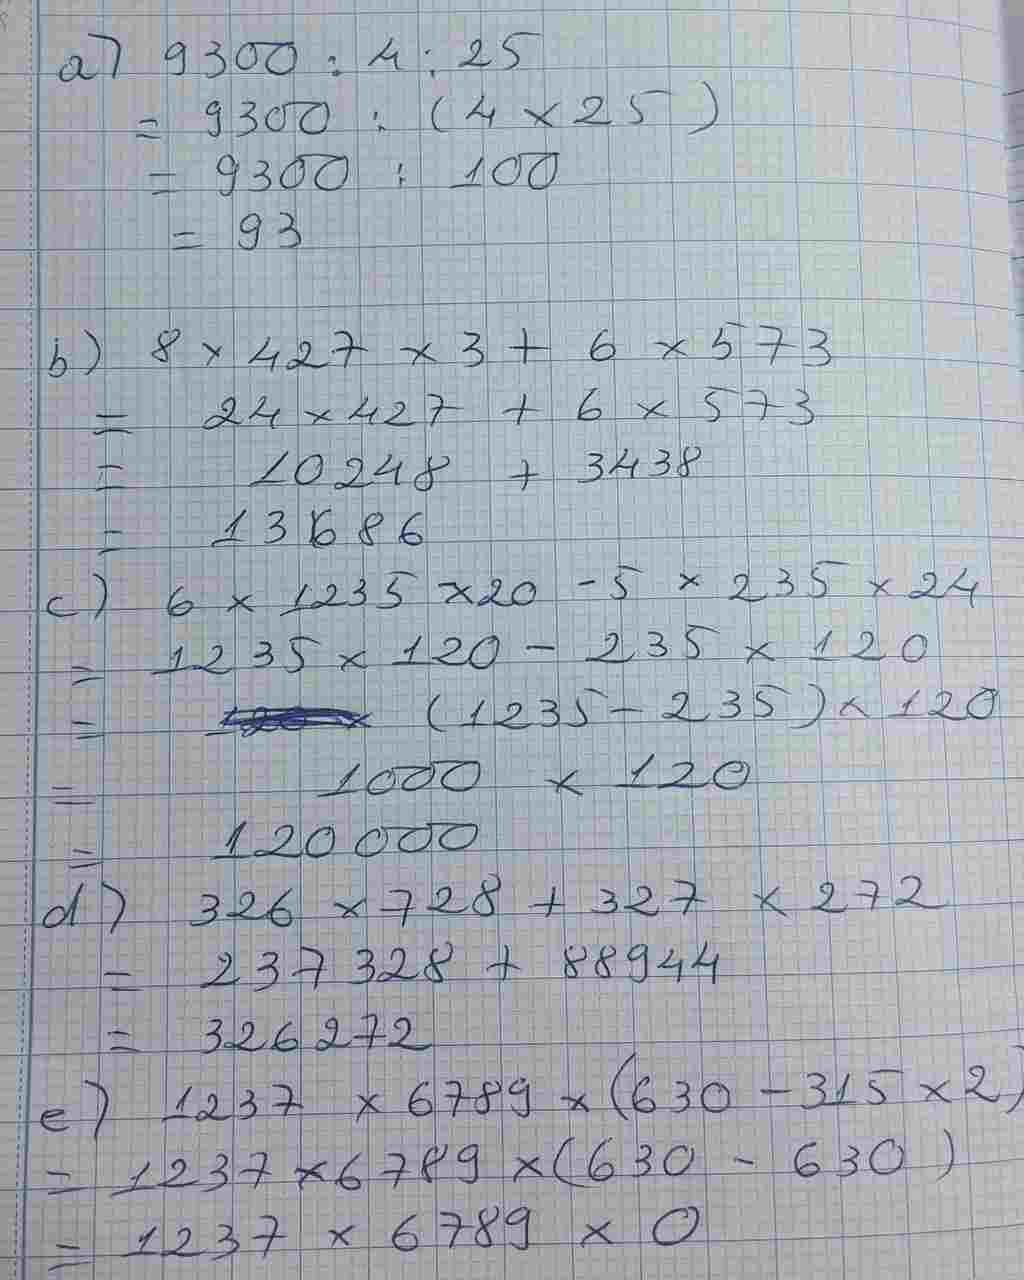 a) 9300 : 4 : 25
= 9300 : (4 x 25)
= 9300 : 100
= 93
b) 8 x 427 x 3 + 6 x 573
= 24 x 427 + 6 x 573
= 10248 + 3438
= 13686
c) 6 x 1235 x 20 - 5 x 235 x 24
= 1235 x 120 - 235 x 120
= (1235 - 235) x 120
= 1000 x 120
= 120000
d) 326 x 728 + 327 x 272
= 237328 + 88944
= 326272
e) 1237 x 6789 x (630 - 315 x 2)
= 1237 x 6789 x (630 - 630)
= 1237 x 6789 x 0